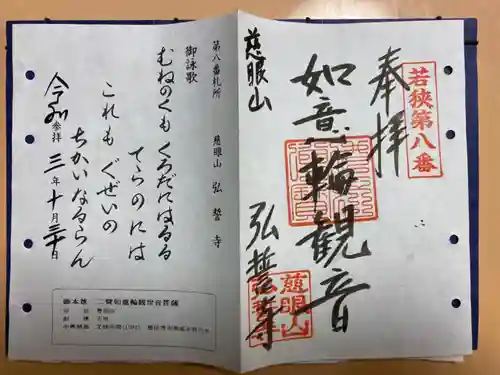 若狭第八番
奉拝
如意輪観音
慈眼山
弘誓寺
慈眼山
弘誓寺
第八番札所 慈眼山 弘誓寺
御詠歌
むねのくも くろだにはるる
てらのには
これも ぐぜいの
ちかいなるらん
令和 参拝 三年十月三十日
御本尊 二臂如意輪観世音菩薩